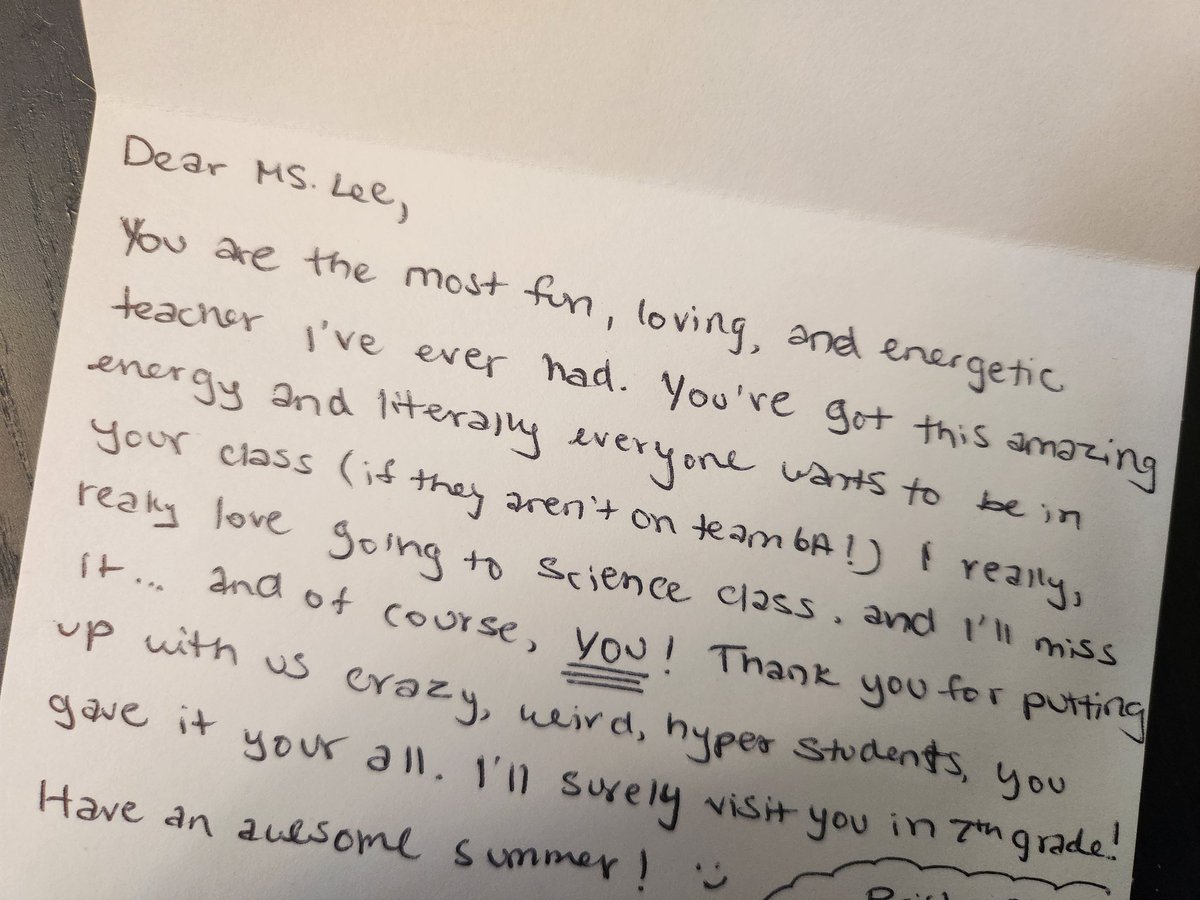 Dear Ms. Lee,
You are the most fun, loving, and energetic
teacher I've ever had. You've got this amazing
energy and literally everyone wants to be in
your class (if they aren't on team 6A!) I really,
really love going to science class, and I'll miss
it... and of course, YOU! Thank you for putting
up with us crazy, weird, hyper students, you
gave it your all. I'll surely visit you in 7th grade!
Have an awesome summer! :)